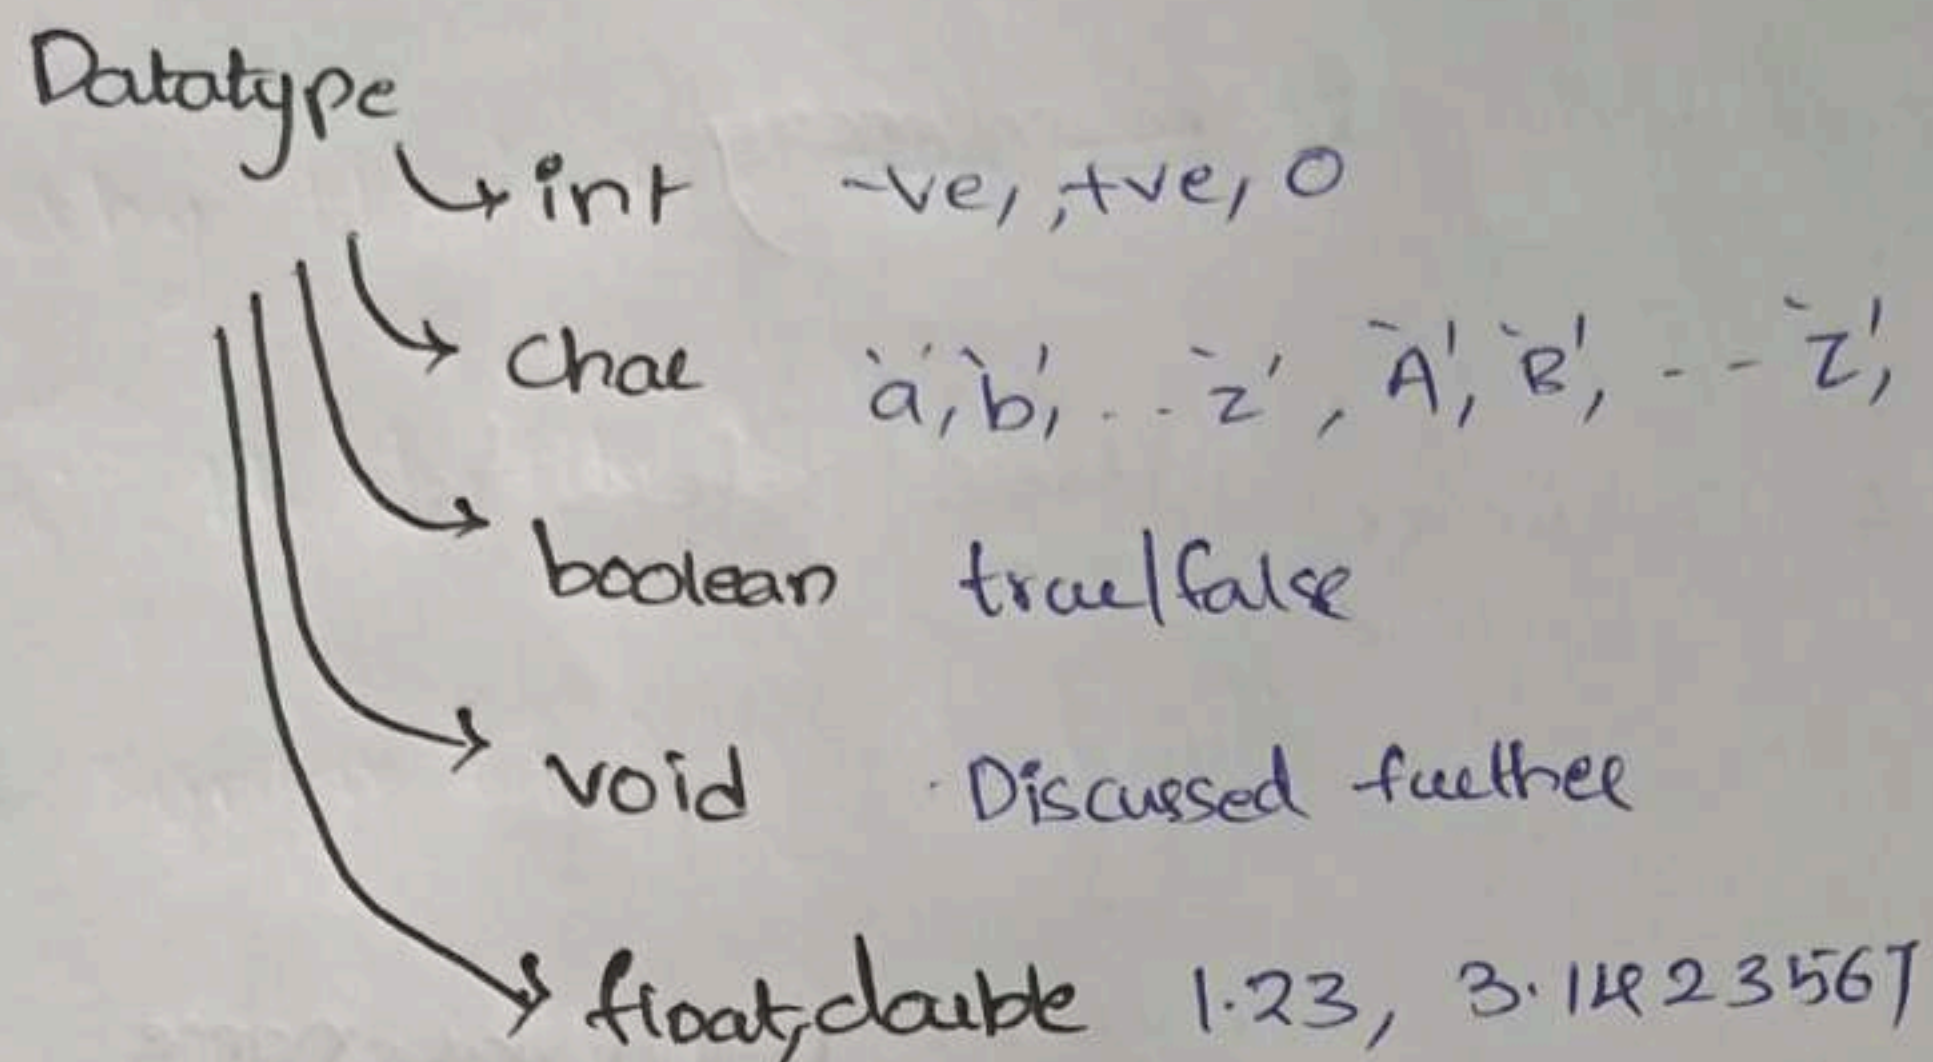 Datatype
int -ve, ,+ve, 0
char 'a', 'b', .. 'z', 'A', 'B', -- 'Z',
boolean true/false
void Discussed further
float, double 1.23, 3.1423567